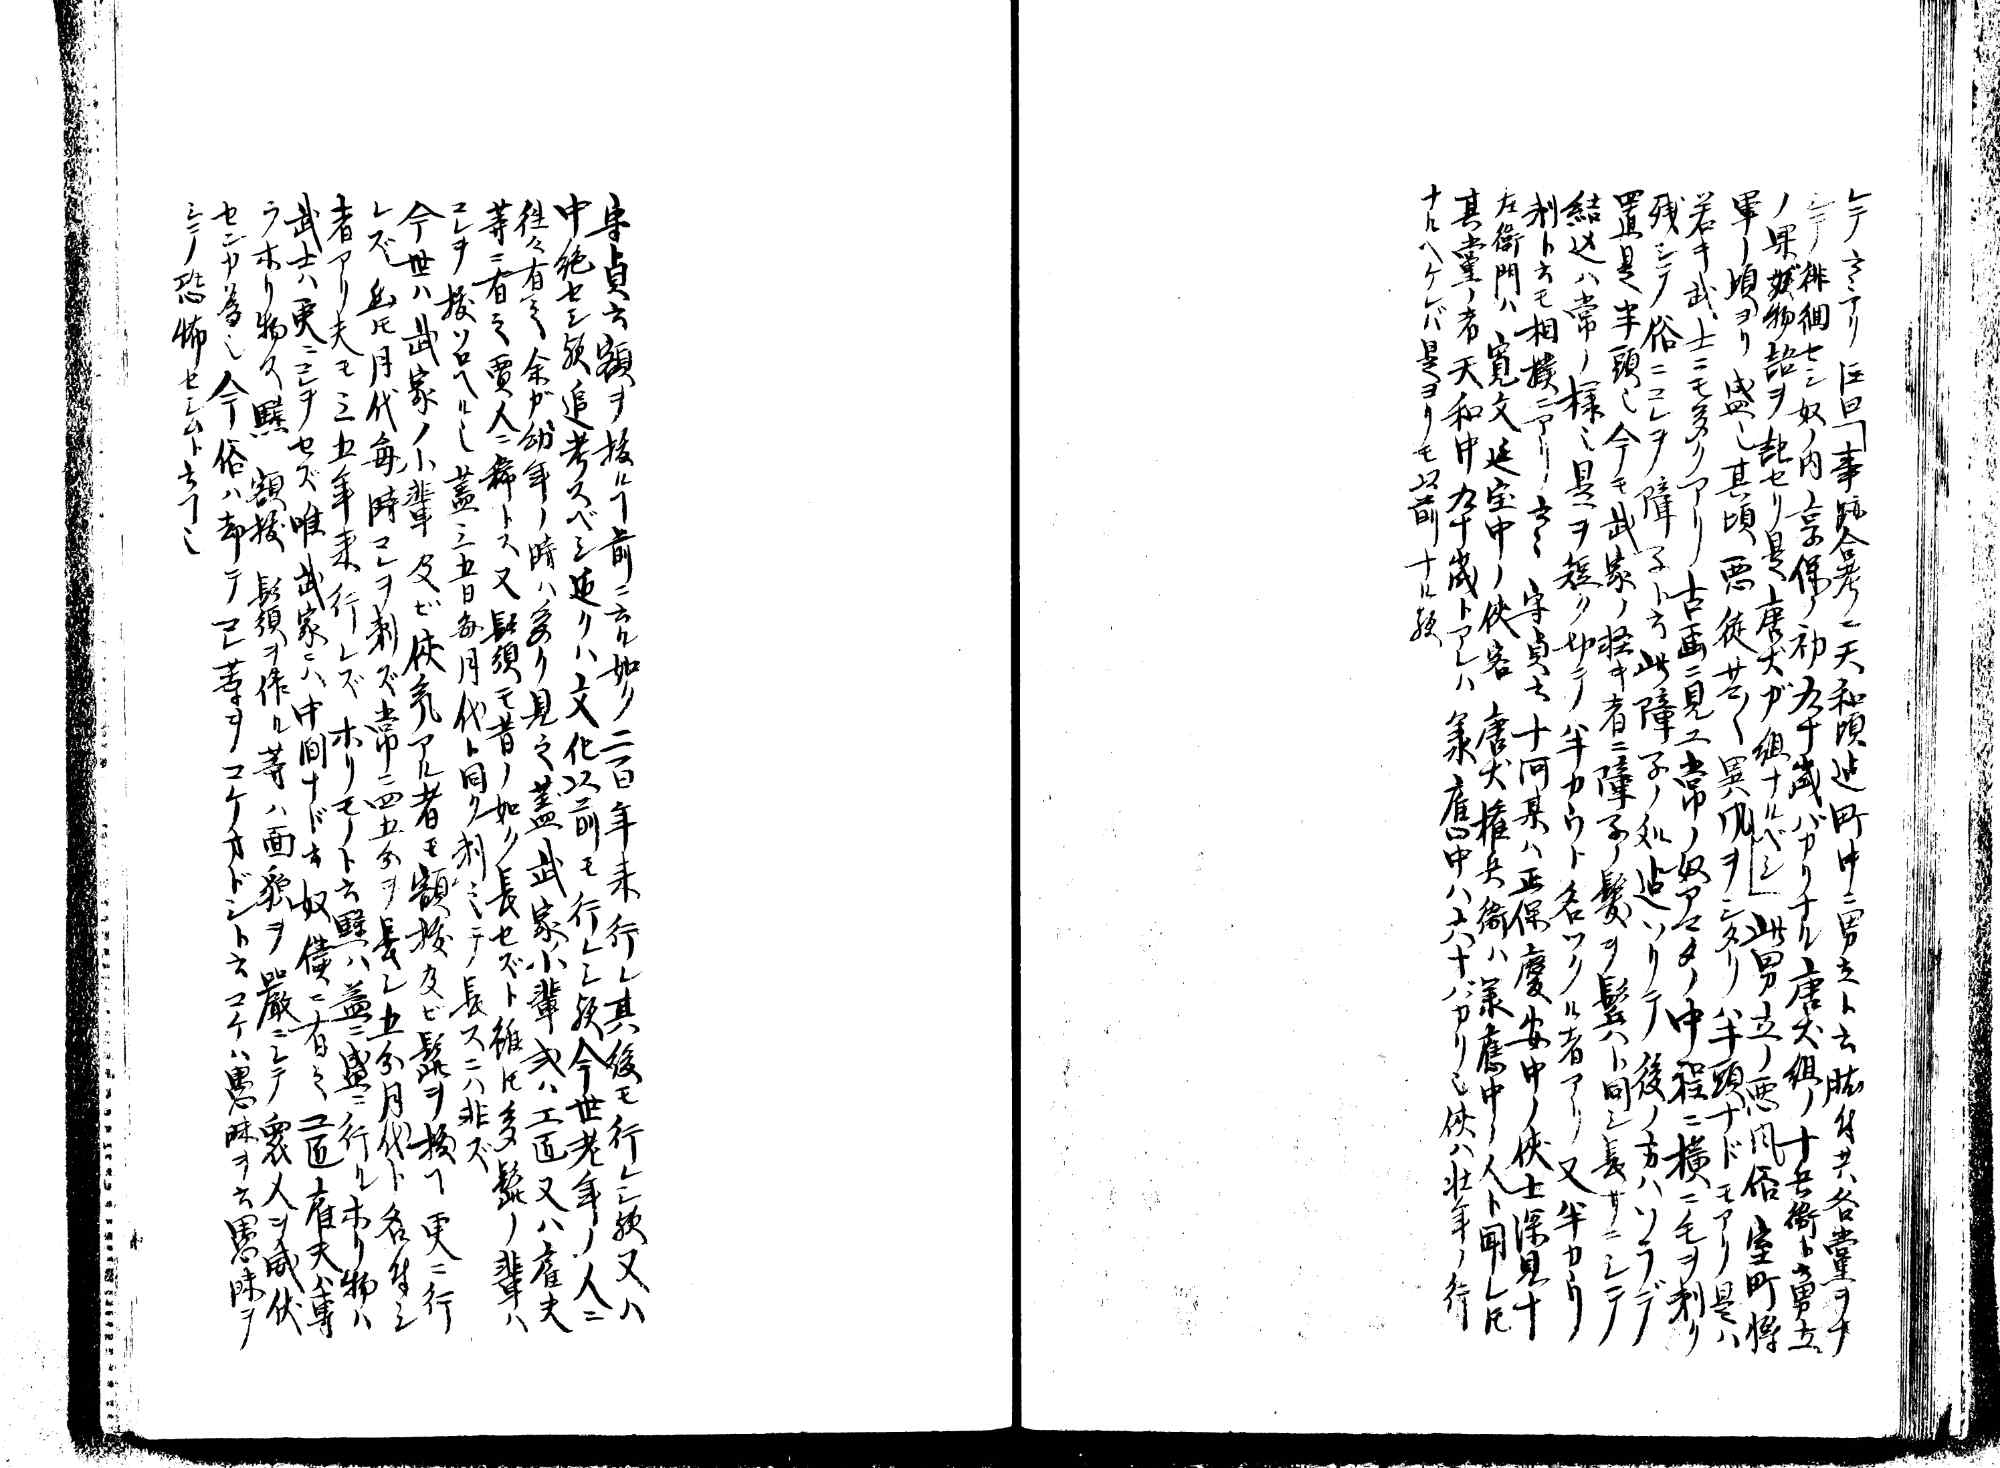 レテ云々アリ 注曰「事跡合考ニ天和頃迄町中ニ男立ト云 者共各党ヲナ
シテ徘徊セシ奴ノ内享保ノ初九十歳バカリナル唐犬組ノ十兵衛ト云男立
ノ果 物語ヲ記セリ是唐犬ガ組ナルベシ」此男立ノ悪風俗室町将
軍ノ頃ヨリ盛也其頃悪徒 異風ヲシタリ半頭ナドモアリ是ハ
若キ武士ニモ多クアリ古画ニ見ユ常ノ奴アマタノ中程ニ横ニ毛ヲ剃リ
残シテ俗ニコレヲ障子ト云此障子ノ処迄ソリテ後ノ方ハソラデ
置是半頭也今モ武家ノ軽キ者ニ障子ノ髪ヲ鬢ハト同シ長サニシテ
結込ハ常ノ様也是ヲ短ク切テ半カウト名ツクル者アリ又半カウリ
剃ト云モ相撲ニアリ云々 守貞云十河某ハ正保慶安中ノ侠士深見十
左衛門ハ寛文延宝中ノ侠客唐犬権兵衛ハ 応中ノ人ト聞レ𪜈
其党ノ者天和中九十歳トアレハ 応中ハ六十バカリ也侠ハ壮年ノ行
ナルヘケレバ是ヨリモ以前ナル歟
守貞云額ヲ抜ルヿ前ニ云ル如ク二百年来行レ其後モ行レシ歟又ハ
中絶セシ歟追考スベシ近クハ文化以前モ行レシ歟今世老年ノ人ニ
往々有之余ガ幼年ノ時ハ多ク見之蓋武家小輩或ハ工匠又ハ雇夫
等ニ有之賈人ニ稀トス又髭須モ昔ノ如ク長セズト雖𪜈多髭ノ輩ハ
コレヲ抜ソロヘル也蓋三五日毎月代ト同ク剃ミシテ長スニハ非ズ
今世ハ武家ノ小輩及ビ侠気アル者モ額抜及ビ髭ヲ抜ヿ更ニ行
レズ 𪜈月代毎時コレヲ剃ズ常ニ四五分ヲ長シ五分月代ト名付シ
者アリ夫モ三五年来行レズホリモノト云黥ハ益ニ盛ニ行ルホリ物ハ
武士ハ更ニコレヲセズ唯武家ニハ中間ナド云奴僕ニ有之工匠雇夫ハ専
ラホリ物ス黥額抜髭須ヲ作ル等ハ面貌ヲ厳ニシテ衆人ヲ威伏
センガ為也今俗ハ却テコレ等ヲコケオドシト云コケハ愚昧ヲ云愚昧ヲ
シテ恐怖セシムト云ヿ也